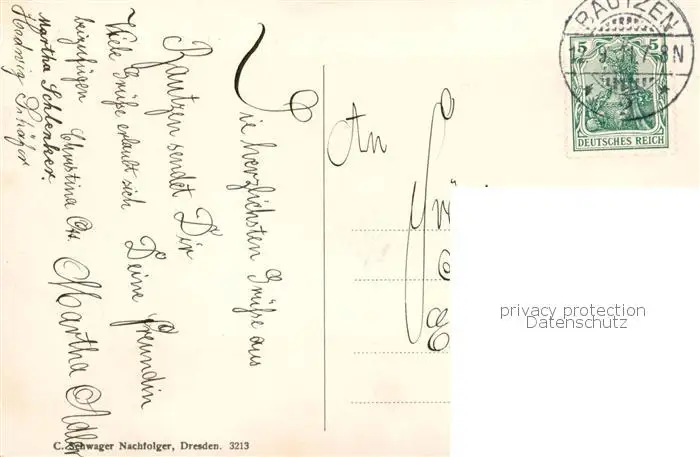 Die herzlichsten Grüße aus
Bautzen sendet Dir
Deine Freundin
Martha Adler
Viele Grüße erlaubt sich
beizufügen Christina Ott.
Martha Schlenker.
Hedwig Schäfer
An
BAUTZEN
12.9.11.7-8N
5 5
DEUTSCHES REICH
privacy protection
Datenschutz
C. Schwager Nachfolger, Dresden. 3213